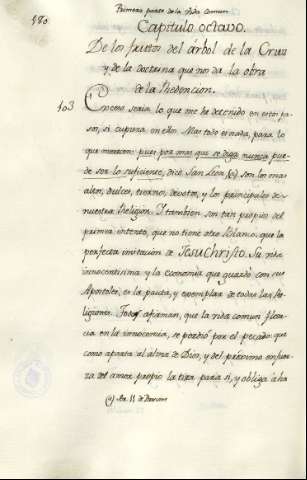 180.
Primera parte de la Vida Comun.
Capitulo octavo.
De los frutos del arbol de la Cruz
y de la doctrina que nos da la obra
de la Redencion.
103 Exceso seria lo que me he detenido en estos pa-
sos, si cupiera en ellos. Mas todo es nada, para lo
que merecen: pues por mas que se diga nunca pue-
de ser lo suficiente, Dice San Leon (a) son los ma-
altos, dulces, tiernos, devotos, y los principales de
nuestra Religion. Y tambien son tan propios del
primer intento, que no tiene otro blanco que la
perfecta imitacion de Jesu Christo. Su vida
inocentissima y la economia que guardó con sus
Apostoles, es la pauta, y exemplar de todas las Re-
ligiones. Todos afirman, que la vida comun flore-
cia en la inocencia, se perdió por el pecado: que
como aparta al alma de Dios, y del proximo en fuer-
za del amor propio la tira para si, y obliga á ha
(a) Ser. 11 de Passion